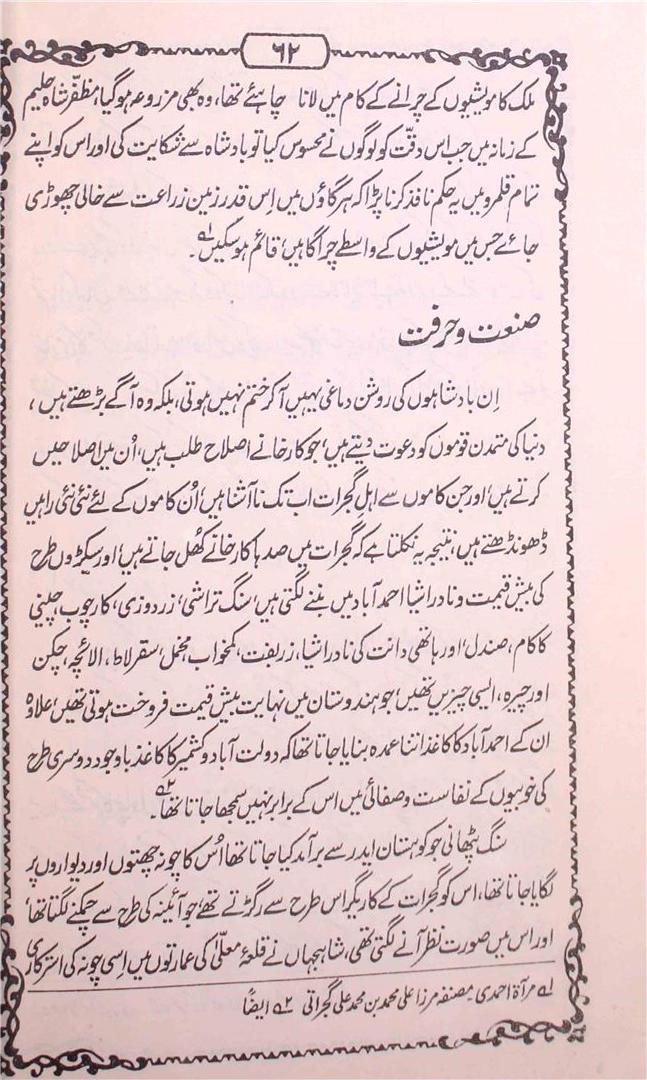 ۶۲
ملک کا مویشیوں کے چرانے کے کام میں لانا چاہئے تھا، وہ بھی مزروعہ ہوگیا، مظفر شاہ حلیم
کے زمانہ میں جب اس دقّت کو لوگوں نے محسوس کیا تو بادشاہ سے شکایت کی اور اس کو اپنے
تمام قلمرو میں یہ حکم نافذ کرنا پڑا کہ ہر گاؤں میں اِس قدر زمین زراعت سے خالی چھوڑی
جائے جس میں مویشیوں کے واسطے چراگاہیں قائم ہوسکیں ۱؎۔
صنعت و حرفت
اِن بادشاہوں کی روشن دماغی یہیں آکر ختم نہیں ہوتی، بلکہ وہ آگے بڑھتے ہیں،
دنیا کی متمدن قوموں کو دعوت دیتے ہیں، جو کارخانے اصلاح طلب ہیں، اُن میں اصلاحیں
کرتے ہیں، اور جن کاموں سے اہلِ گجرات اب تک ناآشنا ہیں، اُن کاموں کے لئے نئی نئی راہیں
ڈھونڈھتے ہیں، نتیجہ یہ نکلتا ہے کہ گجرات میں صدہا کارخانے کُھل جاتے ہیں، اور سیکڑوں طرح
کی بیش قیمت و نادر اشیا احمد آباد میں بننے لگتی ہیں، سنگ تراشی، زردوزی، کارچوب، چینی
کا کام، صندل، اور ہاتھی دانت کی نادر اشیا، زربفت، کمخواب، مخمل، سقرلاط، الائچہ، چکن
اور چیرہ، ایسی چیزیں تھیں، جو ہندوستان میں نہایت بیش قیمت فروخت ہوتی تھیں، علاوہ
ان کے احمد آباد کا کاغذ اتنا عمدہ بنایا جاتا تھا کہ دولت آباد و کشمیر کا کاغذ باوجود دوسری طرح
کی خوبیوں کے نفاست و صفائی میں اس کے برابر نہیں سمجھا جاتا تھا ۲؎۔
سنگ پٹھانی جو کوہستان ایدر سے برآمد کیا جاتا تھا، اُس کا چونہ چھتوں اور دیواروں پر
لگایا جاتا تھا، اس کو گجرات کے کاریگر اس طرح سے رگڑتے تھے، جو آئینہ کی طرح سے چمکنے لگتا تھا،
اور اس میں صورت نظر آنے لگتی تھی، شاہجہاں نے قلعۂ معلّٰی کی عمارتوں میں اِسی چونہ کی استرکاری
۱؎ مرآۃ احمدی مصنفہ مرزا علی محمد بن محمد علی گجراتی ۲؎ ایضًا